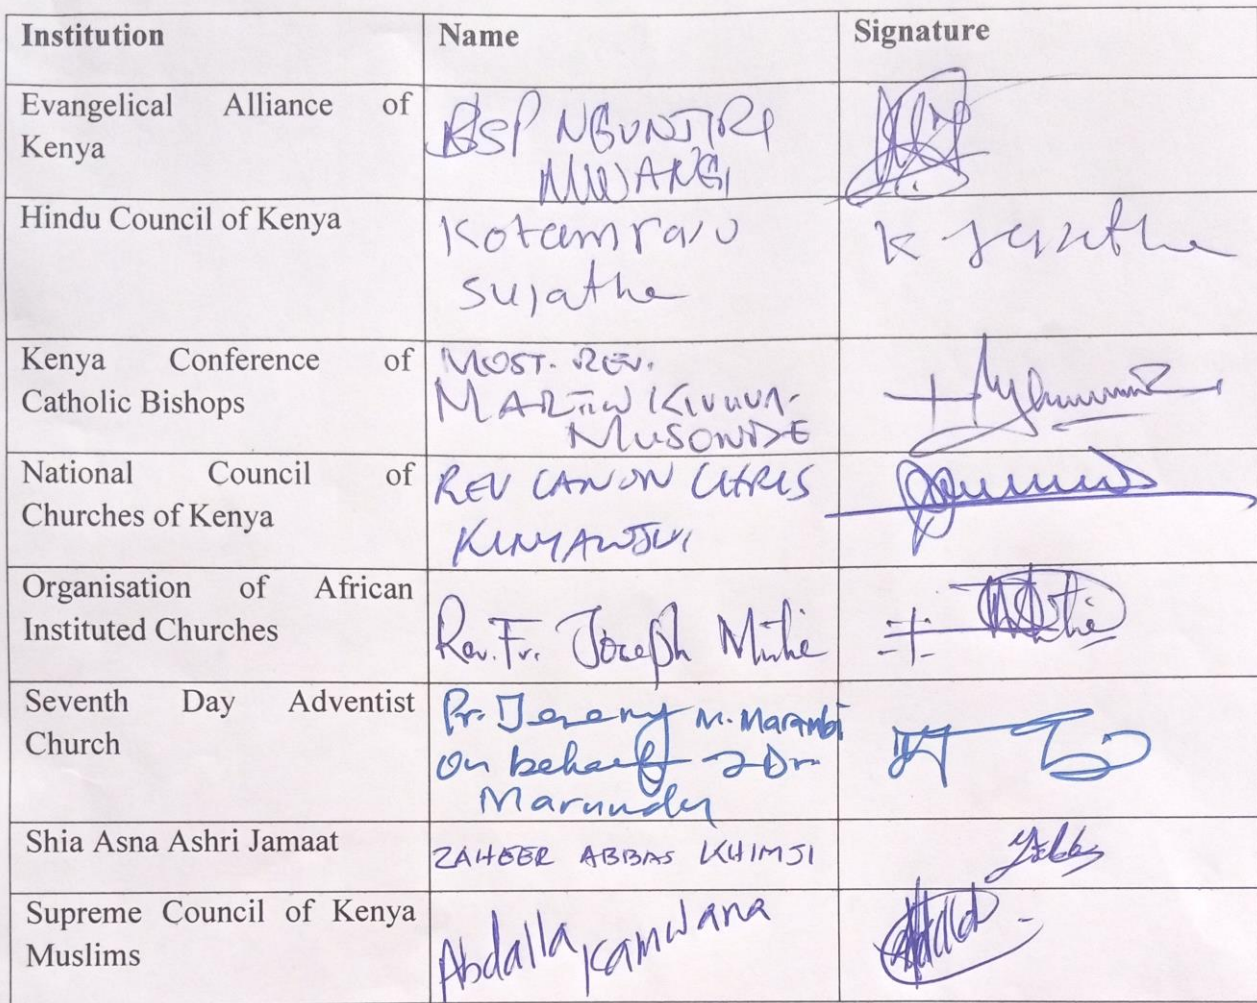 Institution
Name
Signature
Evangelical Alliance of
Kenya
BSP NGUNJIRI
MWANGI
Hindu Council of Kenya
Kotamraju
Sujatha
K Sujatha
Kenya Conference of
Catholic Bishops
MOST. REV.
MARTIN KIVUVA
MUSONDE
National Council of
Churches of Kenya
REV CANON CHRIS
KINYANJUI
Organisation of African
Instituted Churches
Rev. Fr. Joseph Mutie
Seventh Day Adventist
Church
Pr. M. Marambi
on behalf Dr.
Shia Asna Ashri Jamaat
ZAHEER ABBAS KHIMJI
Supreme Council of Kenya
Muslims
Abdalla Kamwana